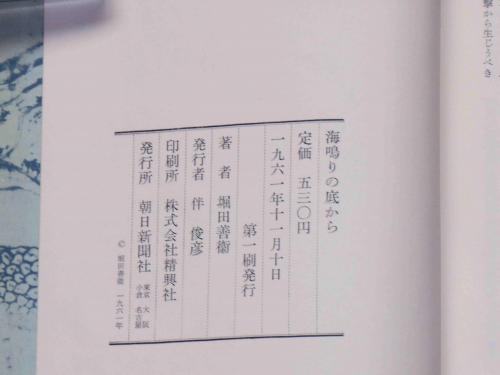 撃から生じうべき
海鳴りの底から
定価 五三〇円
一九六一年十一月十日
第一刷発行
著者 堀田善衞
発行者 伴俊彦
印刷所 株式会社精興社
発行所 朝日新聞社
東京 大阪
小倉 名古屋
© 堀田善衞 一九六一年